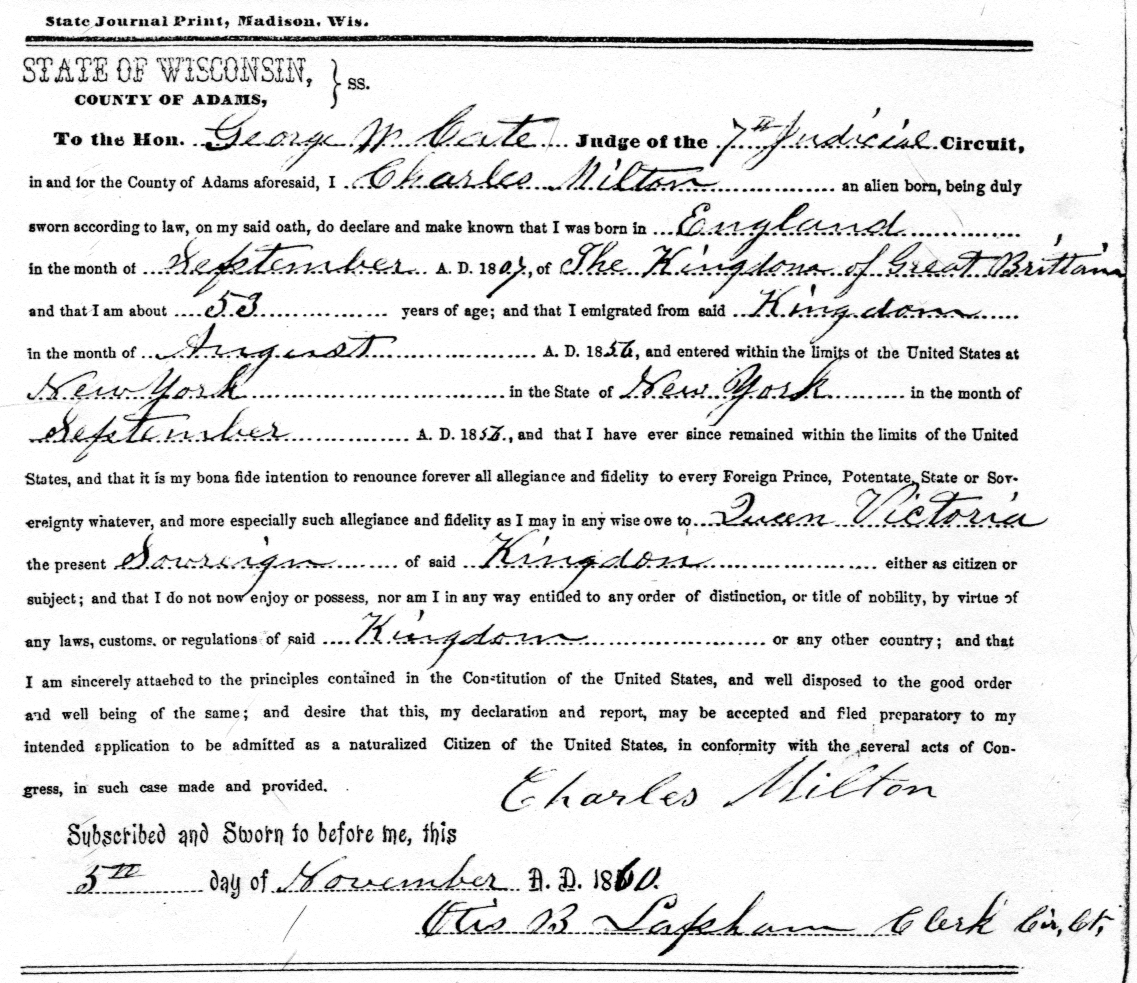 State Journal Print, Madison, Wis.
STATE OF WISCONSIN, } ss.
COUNTY OF ADAMS,
To the Hon. George W Cate Judge of the 7th Judicial Circuit,
in and for the County of Adams aforesaid, I Charles Milton an alien born, being duly
sworn according to law, on my said oath, do declare and make known that I was born in England
in the month of September A. D. 1807, of The Kingdom of Great Brittain
and that I am about 53 years of age; and that I emigrated from said Kingdom
in the month of August A. D. 1856, and entered within the limits of the United States at
New York in the State of New York in the month of
September A. D. 1856, and that I have ever since remained within the limits of the United
States, and that it is my bona fide intention to renounce forever all allegiance and fidelity to every Foreign Prince, Potentate, State or Sov-
ereignty whatever, and more especially such allegiance and fidelity as I may in any wise owe to Queen Victoria
the present Sovreign of said Kingdom either as citizen or
subject; and that I do not now enjoy or possess, nor am I in any way entitled to any order of distinction, or title of nobility, by virtue of
any laws, customs, or regulations of said Kingdom or any other country; and that
I am sincerely attaehed to the principles contained in the Constitution of the United States, and well disposed to the good order
and well being of the same; and desire that this, my declaration and report, may be accepted and filed preparatory to my
intended application to be admitted as a naturalized Citizen of the United States, in conformity with the several acts of Con-
gress, in such case made and provided.
Charles Milton
Subscribed and Sworn to before me, this
5th day of November A. D. 1860.
Otis B Lapham Clerk Cir, Ct,